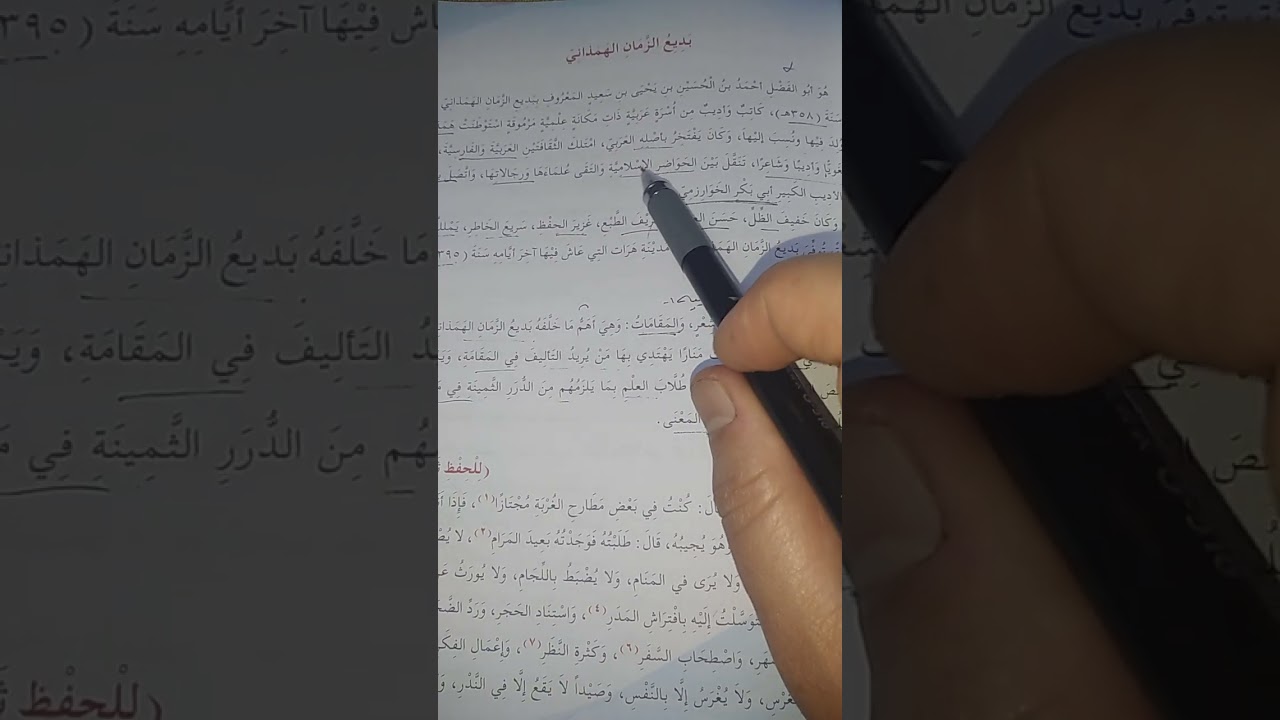 بَدِيعُ الزَّمَانِ الهَمَذَانِيّ
هُوَ أَبُو الفَضْلِ أَحْمَدُ بنُ الْحُسَيْنِ بنِ يَحْيَى بنِ سَعِيدٍ المَعْرُوفِ بِبَدِيعِ الزَّمَانِ الهَمَذَانِيّ
سَنَةَ (٣٥٨هـ)، كَاتِبٌ وَأَدِيبٌ مِن أُسْرَةٍ عَرَبِيَّةٍ ذَات مَكَانَةٍ عِلْمِيَّةٍ مَرْمُوقَة اسْتَوْطَنَتْ
فِيهَا وَنُسِبَ إِلَيْهَا، وَكَانَ يَفْتَخِرُ بِأَصْلِهِ العَرَبِيّ، امْتَلَكَ الثَّقَافَتَيْنِ العَرَبِيَّةَ وَالفَارِسِيَّةَ،
وَأَدِيبًا وَشَاعِرًا، تَنَقَّلَ بَيْنَ الحَوَاضِرِ الإِسْلَامِيَّة وَالتَقَى عُلَمَاءَهَا وَرِجَالَاتِهَا، وَاتَّصَلَ
الأَدِيبِ الكَبِيرِ أَبِي بَكْرٍ الخَوَارِزمِيّ
وَكَانَ خَفِيفَ الظِّلِّ، حَسَنَ ظَرِيفَ الطَّبْعِ، غَزِيرَ الحِفْظِ، سَرِيعَ الخَاطِرِ،
تُوفِّيَ بَدِيعُ الزَّمَانِ مَدِيْنَةِ هَرَاتَ التِي عَاشَ فِيْهَا آخِرَ أَيَّامِهِ سَنَةَ (٣٩٥
وَالمَقَامَاتُ: وَهِيَ أَهَمُّ مَا خَلَّفَهُ بَدِيعُ الزَّمَانِ الهَمَذَانِ
مَنَارًا يَهْتَدِي بِهَا مَنْ يُرِيدُ التَّأليفَ فِي المَقَامَةِ،
طُلَّابَ العِلْمِ بِمَا يَلزَمُهُم مِنَ الدُّرَرِ الثَّمِينَةِ فِي
المَعْنَى.
(لِلْحِفْظِ
كُنْتُ فِي بَعْضِ مَطَارِحِ الغُرْبَةِ مُجْتَازًا(١)، فَإِذَا
وَهُوَ يُجِيبُهُ، قَالَ: طَلَبْتُهُ فَوَجَدْتُهُ بَعِيدَ المَرَامِ(٢)، لا
وَلا يُرَى فِي المَنَامِ، وَلا يُضْبَطُ بِاللِّجَامِ، وَلا يُورَثُ
فَتَوَسَّلْتُ إِلَيْهِ بِافْتِرَاشِ المَدَرِ(٤)، وَاسْتِنَادِ الحَجَرِ، وَرَدِّ
وَاصْطِحَابِ السَّفَرِ(٦)، وَكَثْرَةِ النَّظَرِ(٧)، وَإِعْمَالِ الفِكَرِ
وَلَا يُغْرَسُ إِلَّا بِالنَّفْسِ، وَصَيْداً لَا يَقَعُ إِلَّا فِي النَّدْرِ،